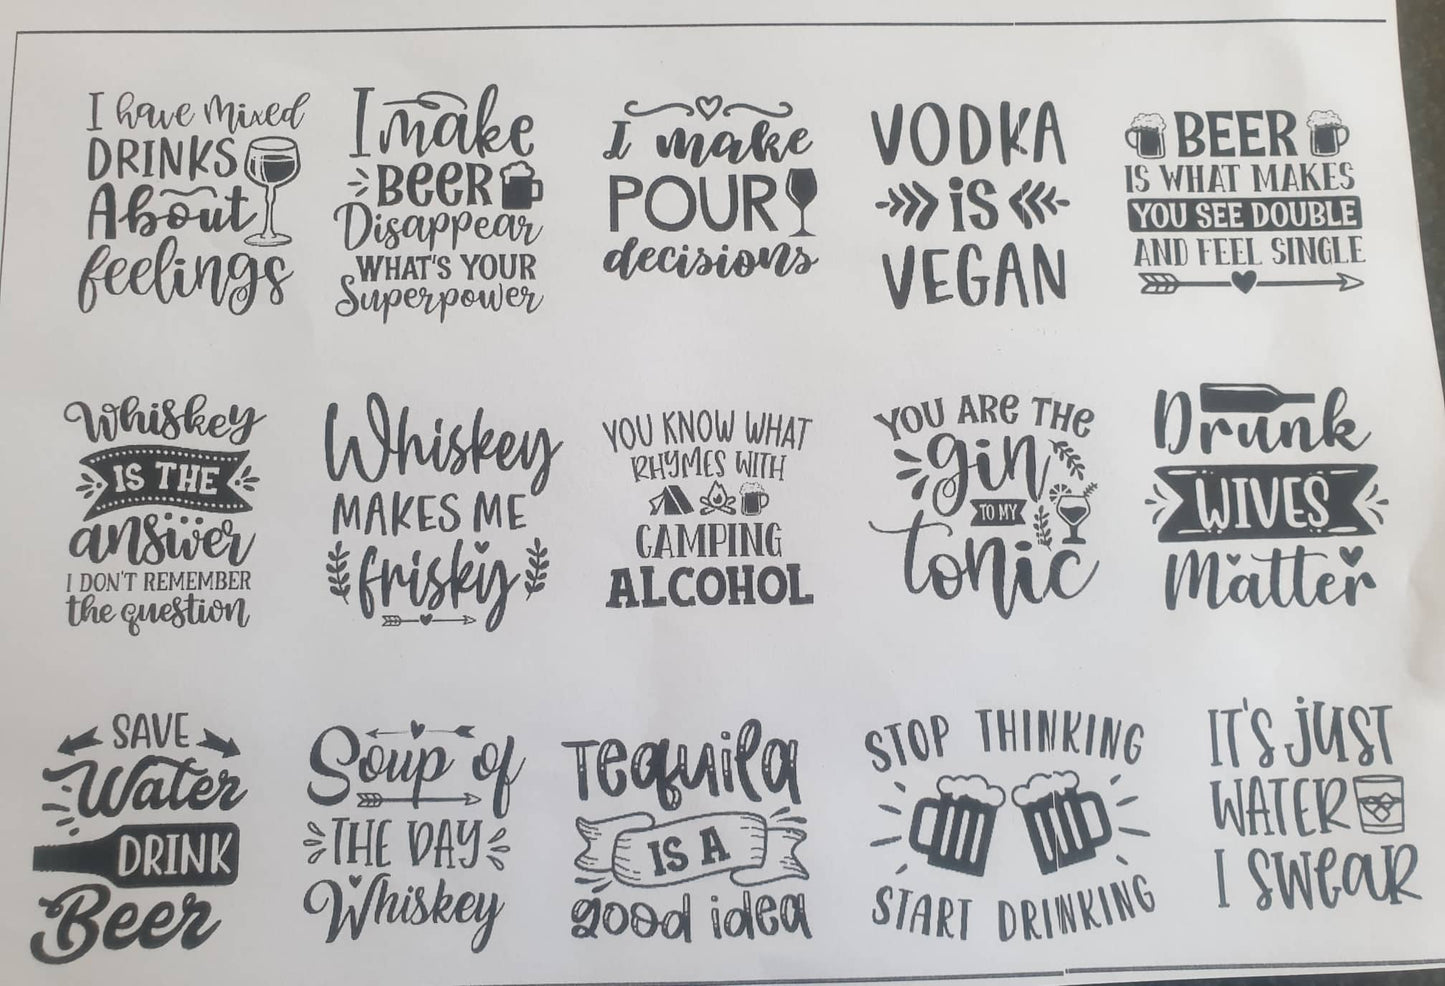 I have Mixed
DRINKS
About
feelings
I make
BEER
Disappear
WHAT'S YOUR
Superpower
I make
POUR
decisions
VODKA
is
VEGAN
BEER
IS WHAT MAKES
YOU SEE DOUBLE
AND FEEL SINGLE
Whiskey
IS THE
answer
I DON'T REMEMBER
the question
Whiskey
MAKES ME
frisky
YOU KNOW WHAT
RHYMES WITH
CAMPING
ALCOHOL
YOU ARE THE
gin
TO MY
tonic
Drunk
WIVES
Matter
SAVE
Water
DRINK
Beer
Soup of
THE DAY
Whiskey
Tequila
IS A
good idea
STOP THINKING
START DRINKING
IT'S JUST
WATER
I SWEAR